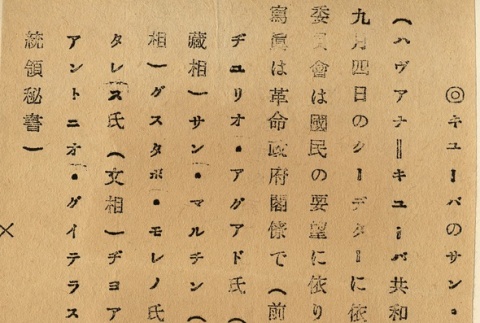 ◎キユーバのサン・
(ハヴアナ―キユーバ共和
九月四日のクーデターに依
委員會は國民の要望に依り
寫眞は革命政府閣僚で(前
チユリオ・アグアド氏(
藏相)サン・マルチン(
相)グスタボ・モレノ氏
タレス氏(文相)ヂヨア
アントニオ・グイテラス
統領秘書)
×